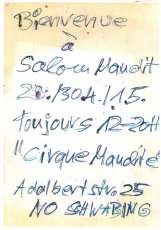 Bienvenue
à
Salon Maudit
29./30.4./15.
toujours 12-20H
"Cirque Maudité
Adalbertstr. 25
NO SCHWABING